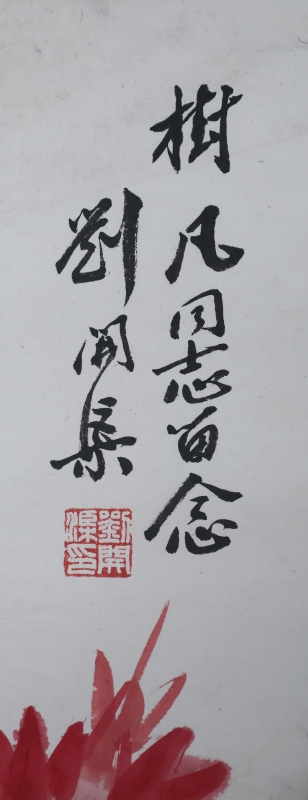 樹凡同志留念
劉開渠
劉開渠印